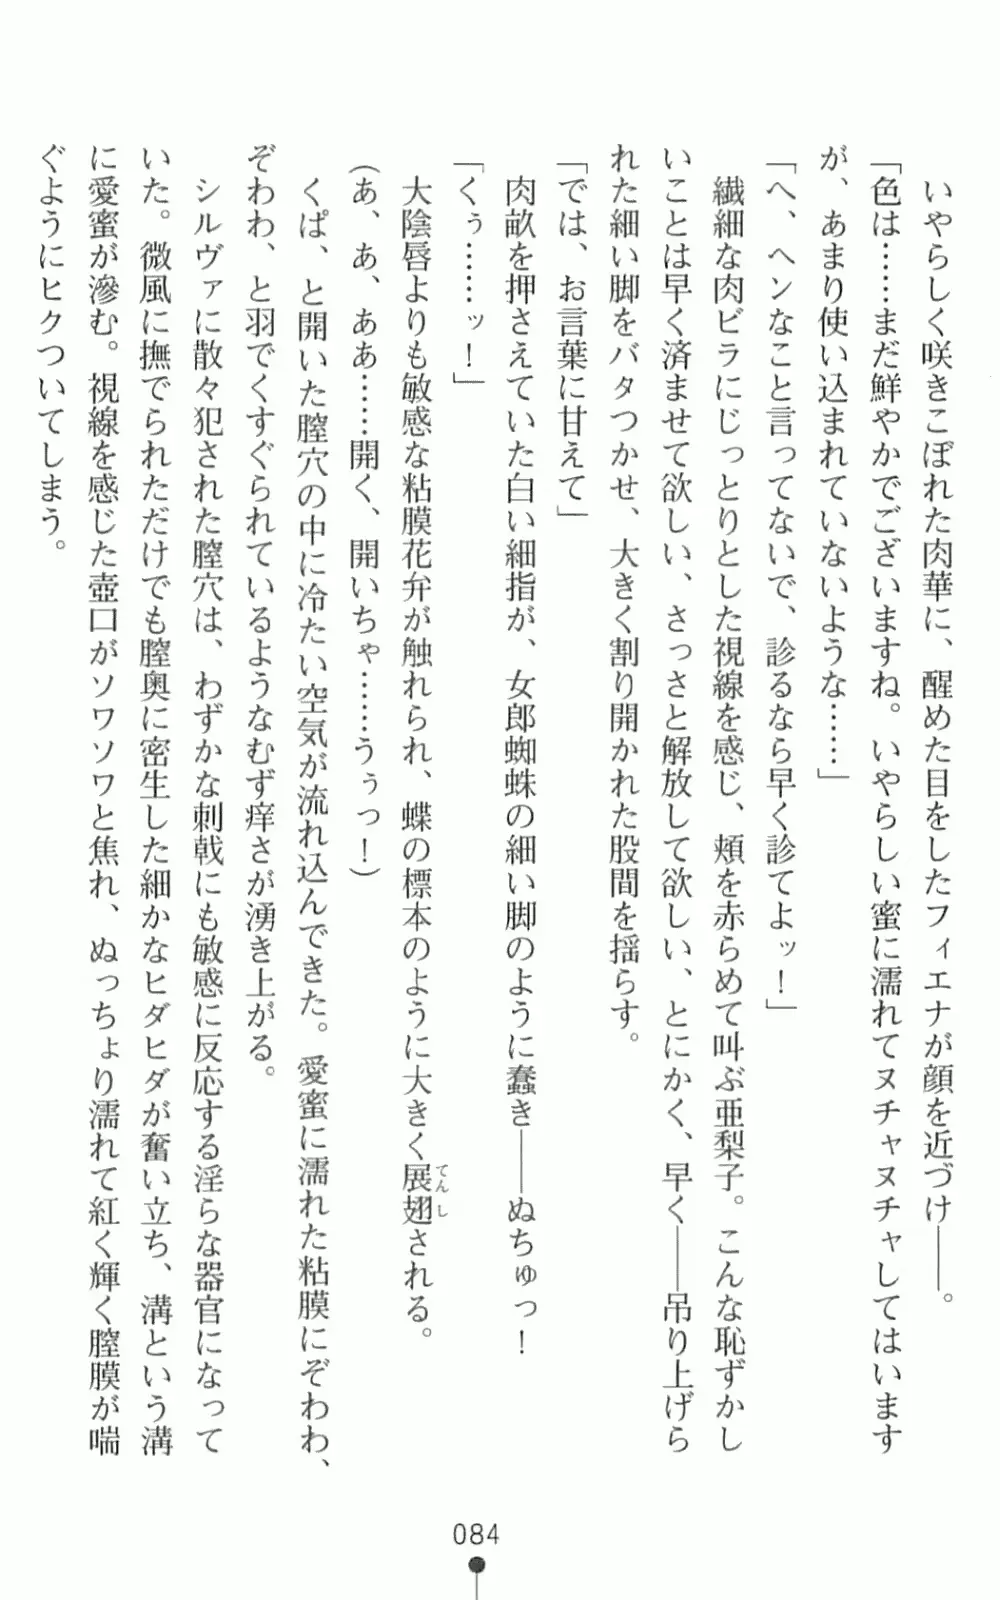 いやらしく咲きこぼれた肉華に、醒めた目をしたフィエナが顔を近づけ――。
「色は……まだ鮮やかでございますね。いやらしい蜜に濡れてヌチャヌチャしてはいます
が、あまり使い込まれていないような……」
「へ、ヘンなこと言ってないで、診るなら早く診てよッ！」
繊細な肉ビラにじっとりとした視線を感じ、頬を赤らめて叫ぶ亜梨子。こんな恥ずかし
いことは早く済ませて欲しい、さっさと解放して欲しい、とにかく、早く――吊り上げら
れた細い脚をバタつかせ、大きく割り開かれた股間を揺らす。
「では、お言葉に甘えて」
肉畝を押さえていた白い細指が、女郎蜘蛛の細い脚のように蠢き――ぬちゅっ！
「くぅ……ッ！」
大陰唇よりも敏感な粘膜花弁が触れられ、蝶の標本のように大きく展翅てんしされる。
（あ、あ、ああ……開く、開いちゃ……うぅっ！）
くぱ、と開いた膣穴の中に冷たい空気が流れ込んできた。愛蜜に濡れた粘膜にぞわわ、
ぞわわ、と羽でくすぐられているようなむず痒さが湧き上がる。
シルヴァに散々犯された膣穴は、わずかな刺戟にも敏感に反応する淫らな器官になって
いた。微風に撫でられただけでも膣奥に密生した細かなヒダヒダが奮い立ち、溝という溝
に愛蜜が滲む。視線を感じた壺口がソワソワと焦れ、ぬっちょり濡れて紅く輝く膣膜が喘
ぐようにヒクついてしまう。
084